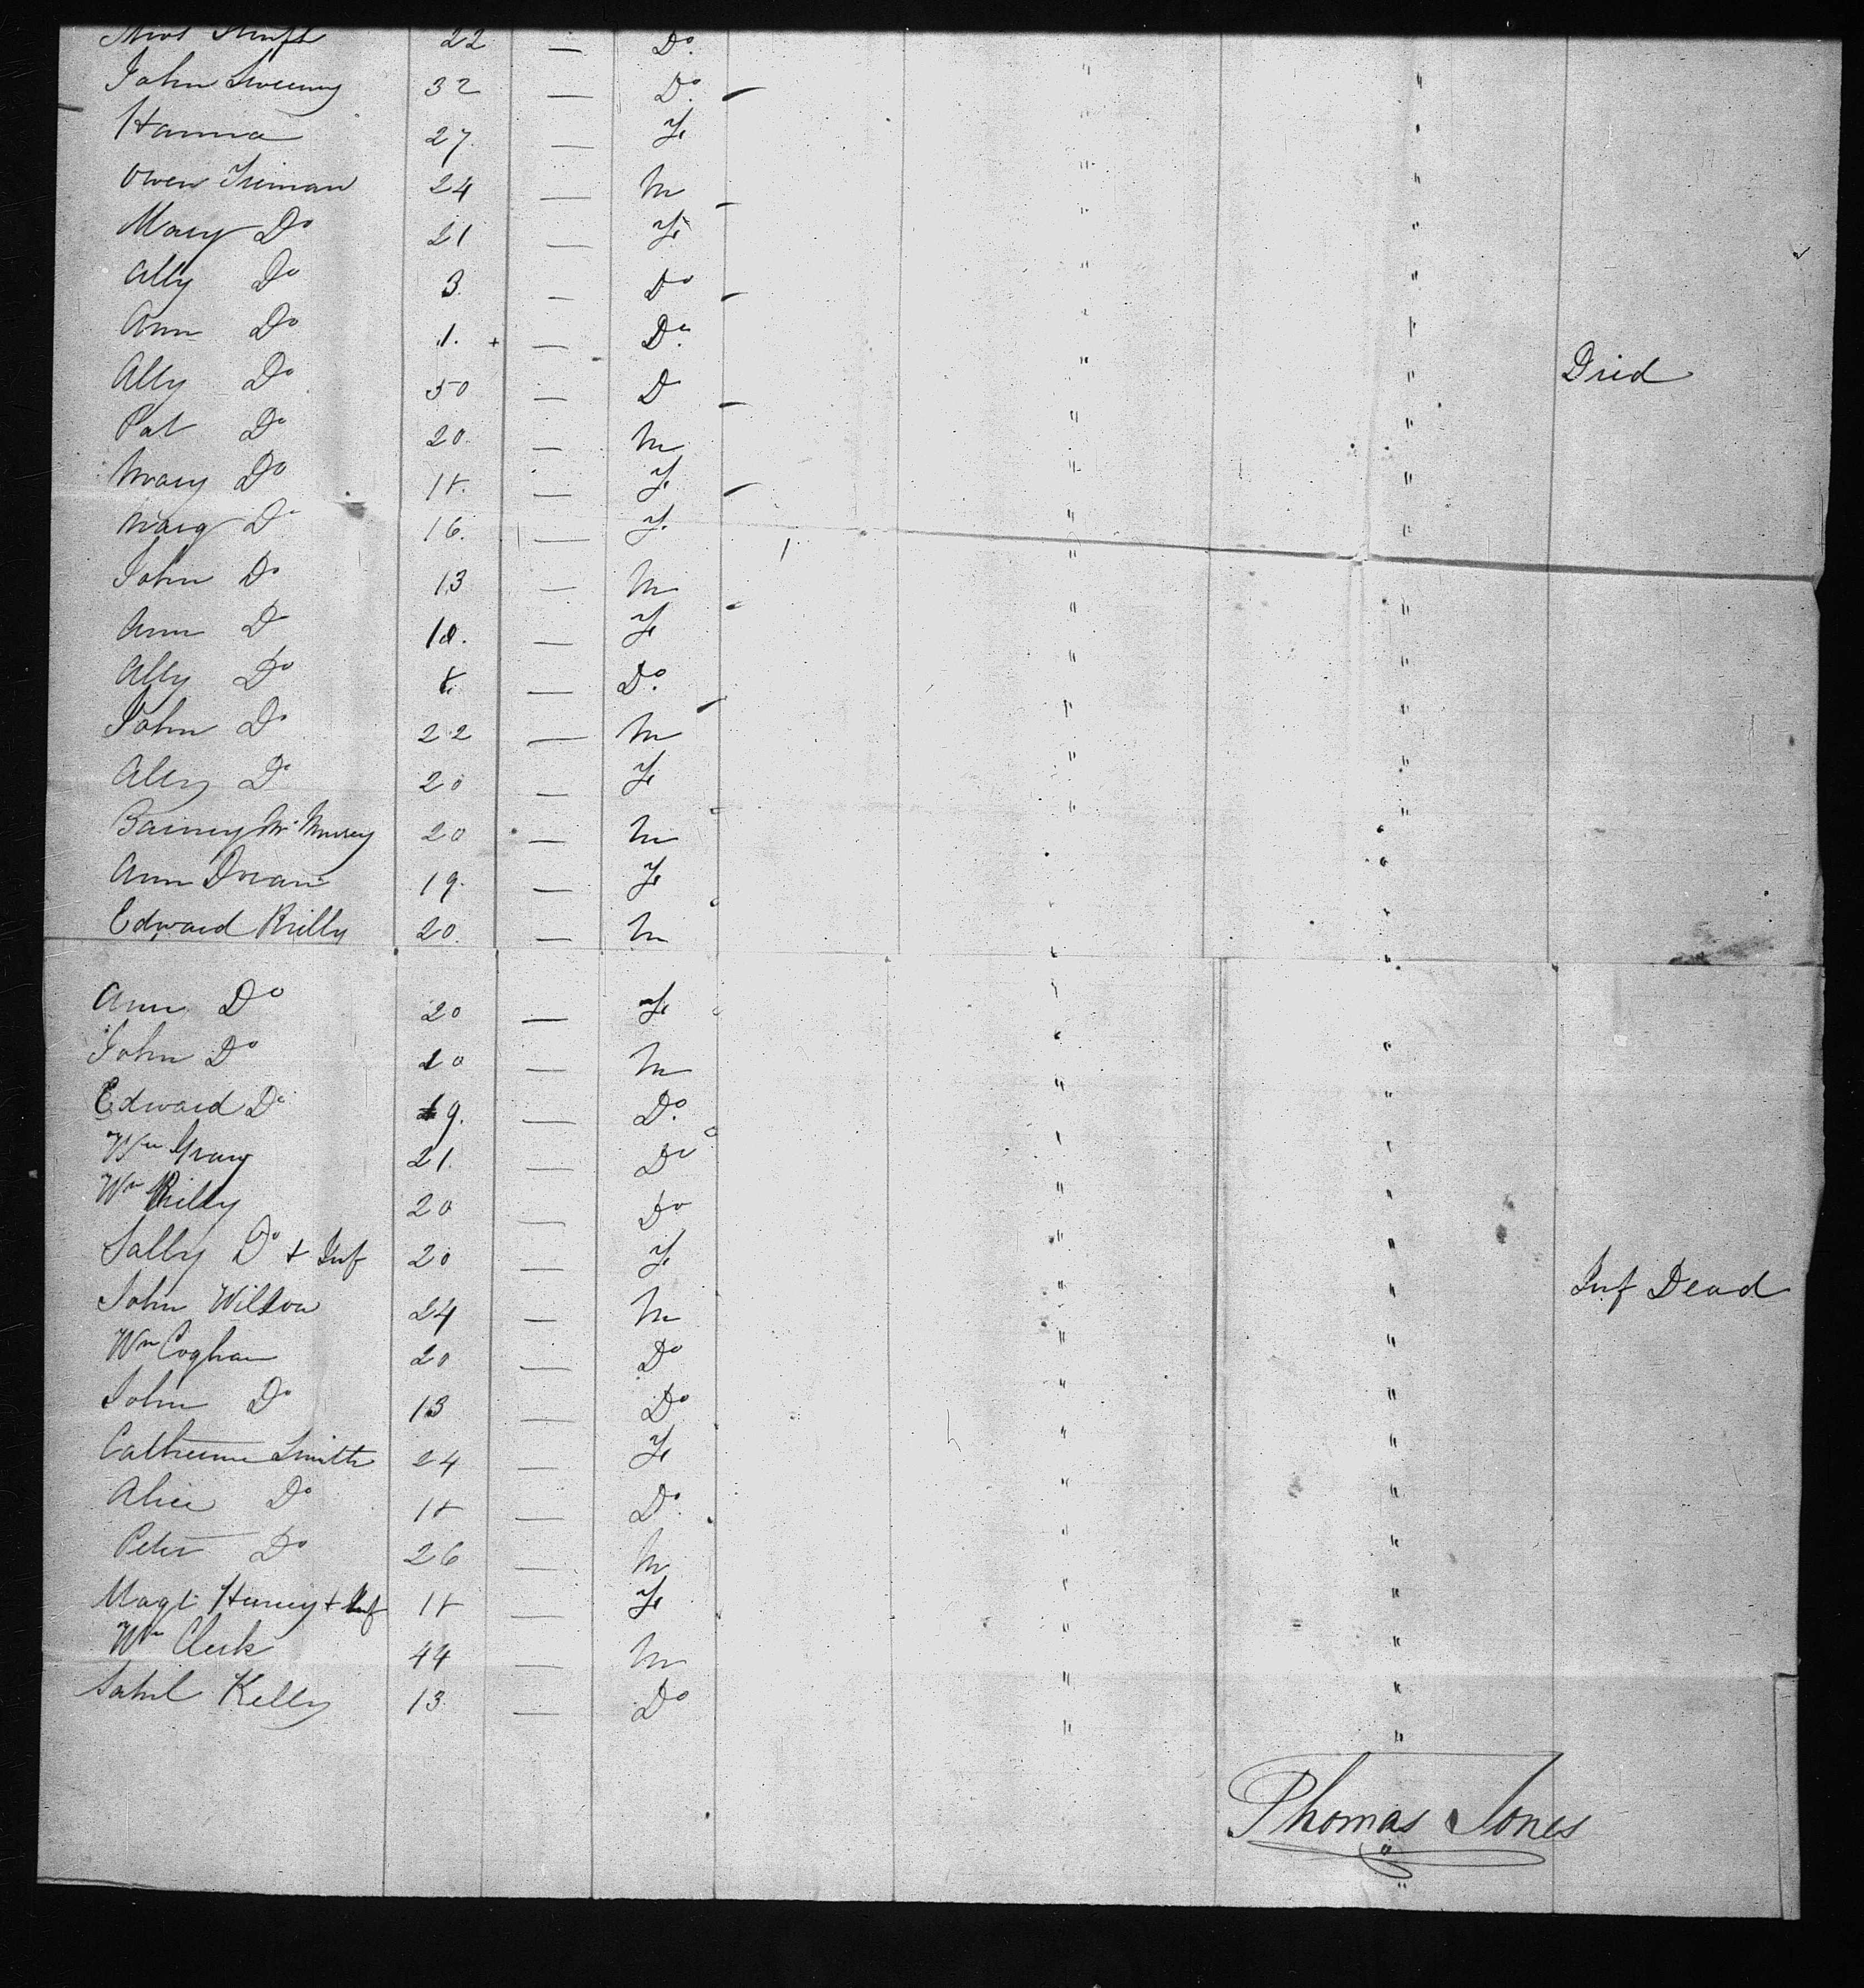 22 — Do.
John Sweeny 32 — Do.
Hanna 27. — Fe
Owen Tiernan 24 — M
Mary Do 21 — Fe
Ally Do 3. — Do
Ann Do 1. + — Do.
Ally Do 50 — D Died
Pat Do 20. — M
Mary Do 18. — Fe
Marg Do 16. — Fe
John Do 13 — M
Ann D 10. — Fe
Ally Do 8. — Do.
John Do 22 — M
Ally Do 20 — Fe
Barney 20 — M
Ann Doran 19. — Fe
Edward Reilly 20. — M
Ann Do 20 — Fe
John Do 20 — M
Edward Do 19. — Do.
Wm Gray 21. — Do
Wm Reilly 20 — Do
Sally Do + Inf 20 — Fe Inf Dead
John Wilson 24 — M
Wm Coghan 20 — Do
John Do 13 — Do
Catherine Smith 24 — Fe
Alice Do 18 — Do.
Peter Do 26 — M
Magt + Inf 18 — Fe
Wm Clerk 44 — M
Kelly 13 — Do
Thomas Jones